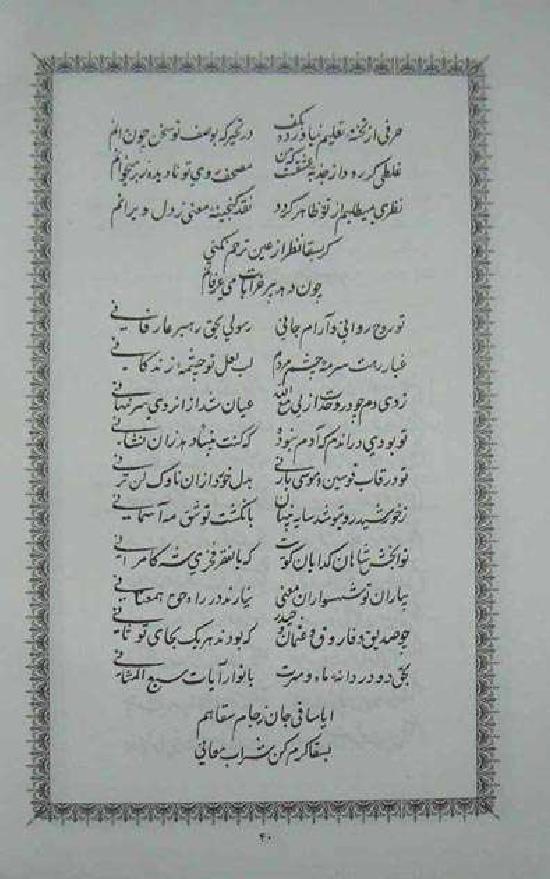 حرفی از تخته تعلیم نیاورده بکف در تحیر که بوصف تو سخن چون رانم
غلطی گر رود از جذبه عشقت مصحف روی تو نادیده ز بر میخوانم
نظری میطلبم از تو ظاهر گردد نقد گنجینه معنی ز دل ویرانم
گر بسقا نظر از عین ترحم نکنی
چون دهد بر عرفات می عرفانم
تو روح روانی و آرام جانی رسولی بحق رهبر عارفانی
غبار رهت سرمه چشم مردم لب لعل تو چشمه زندگانی
زدی دم چو در وحدت از لی مع الله عیان شد از آنروی سر نهانی
تو بودی در آندم که آدم نبود که کنت نبیا دهد زان نشانی
تو در قاب قوسین و موسی بار بدل خورد از آن ناوک لن ترانی
ز خورشید رو تو شد سایه پنهان بانگشت تو شق مه آسمانی
توانگر شاهان گدایان کویت که بالفقر فخری شد کامرانی
بیاران تو شهسواران معنی نیارند در راه دین همعنانی
چو صدیق و فاروق و عثمان و حیدر که بودند هر یک بجای تو ثانی
بحق دو دردانه ماه و مهرت بانوار آیات سبع المثانی
ایا ساقی جان ز جام سقاهم
بسقا کرم کن شراب معانی
۴۰